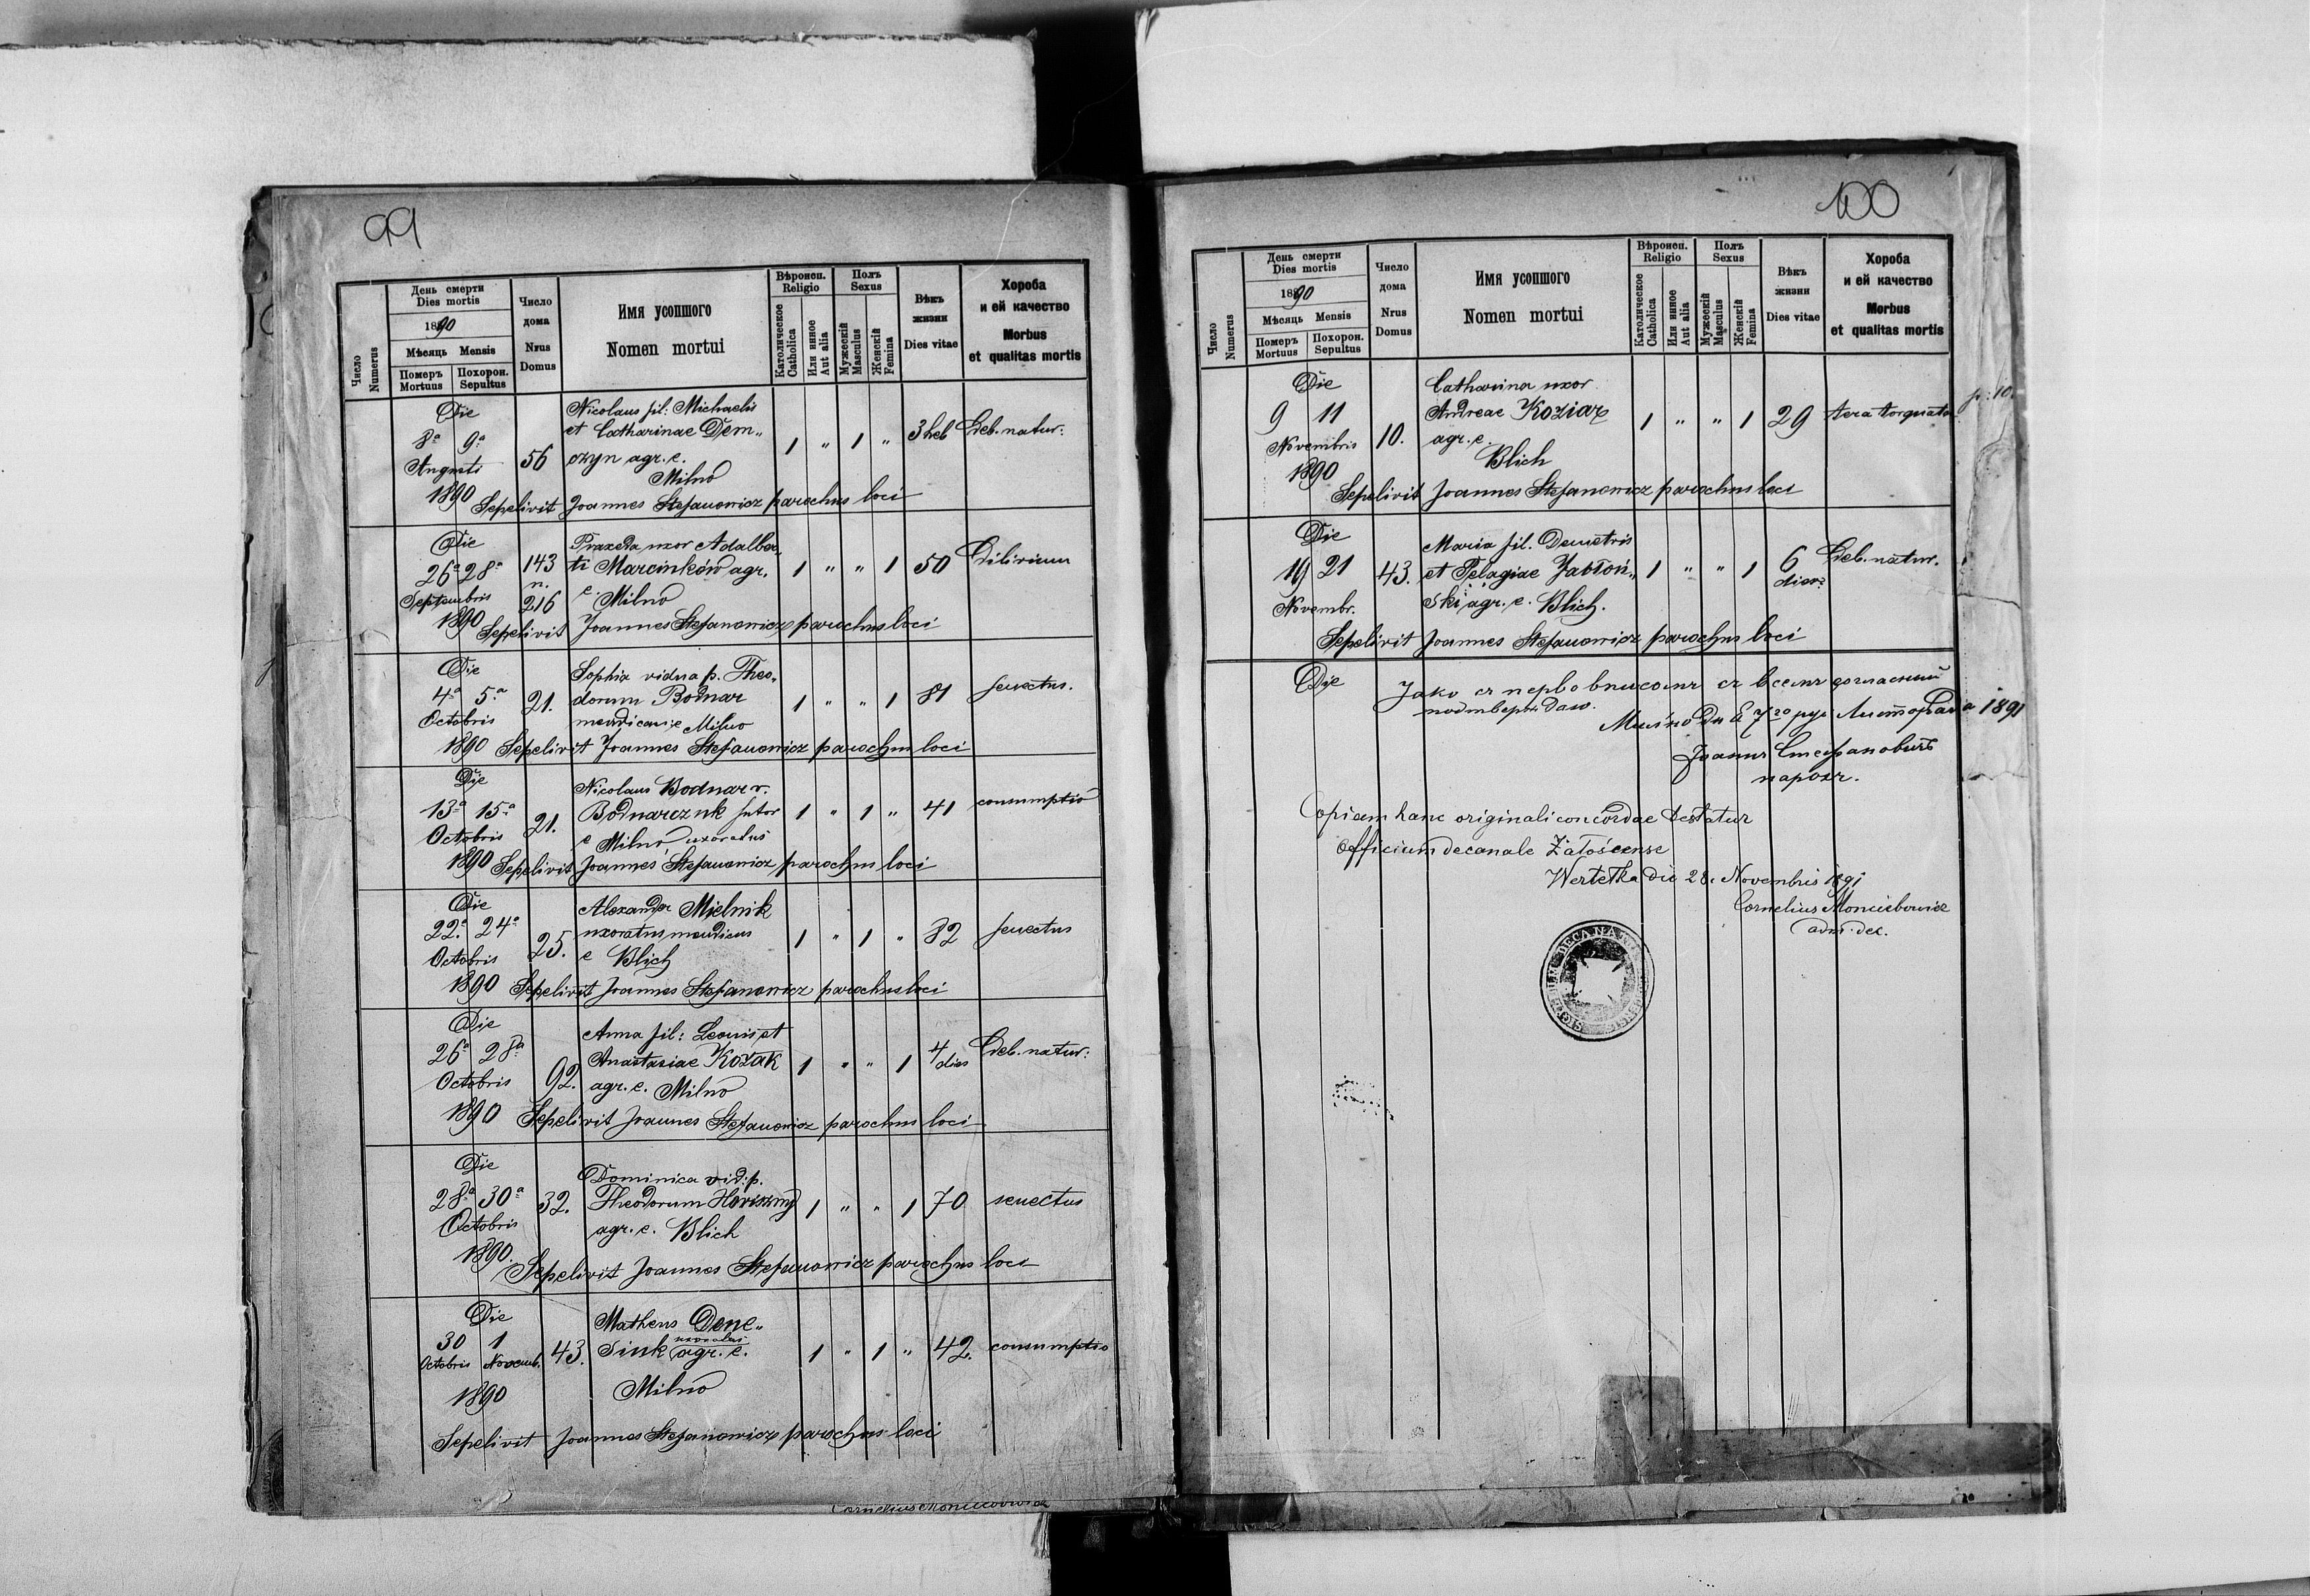 99
Число
Numerus
День смерти
Dies mortis
1890
Мѣсяць Mensis
Померъ
Mortuus
Похорон.
Sepultus
Число
дома
Nrus
Domus
Имя усопшого
Nomen mortui
Вѣроисп.
Religio
Католическое
Catholica
Или инное
Aut alia
Полъ
Sexus
Мужескій
Masculus
Женскій
Femina
Вѣкъ
жизни
Dies vitae
Хороба
и ей качество
Morbus
et qualitas mortis
Die
8ª 9ª
Augusti
1890
56
Nicolaus fil: Michaelis
et Catharinae Dem„
czyn agr. e.
Milno
1 „ 1 „ 3 heb Deb. natur:
Sepelivit Joannes Stefanowicz parochus loci
Die
26ª 28ª
Septembris
1890
143
n.
216
Praxeda uxor Adalber„
ti Marcinków agr.
e. Milno
1 „ „ 1 50 Dilirium
Sepelivit Joannes Stefanowicz parochus loci
Die
4ª 5ª
Octobris
1890
21.
Sophia vidua p. Theo„
dorum Bodnar
mendicans e Milno
1 „ „ 1 81 senectus.
Sepelivit Joannes Stefanowicz parochus loci
Die
13ª 15ª
Octobris
1890
21.
Nicolaus Bodnar v.
Bodnarczuk sutor
e Milno uxoratus
1 „ 1 „ 41 consumptio
Sepelivit Joannes Stefanowicz parochus loci
Die
22ª 24ª
Octobris
1890
25.
Alexander Mielnik
uxoratus mendicus
e Blich
1 „ 1 „ 82 senectus
Sepelivit Joannes Stefanowicz parochus loci
Die
26ª 28ª
Octobris
1890
92.
Anna fil: Leonis et
Anastasiae Kozak
agr. e. Milno
1 „ „ 1 4 dies Deb. natur:
Sepelivit Joannes Stefanowicz parochus loci
Die
28ª 30ª
Octobris
1890.
32.
Dominica vid: p.
Theodorum
agr. e. Blich
1 „ „ 1 70 senectus
Sepelivit Joannes Stefanowicz parochus loci
Die
30 1
Octobris Novemb.
1890
43.
Matheus Dene„
siuk uxoratus agr. e.
Milno
1 „ 1 „ 42. consumptio
Sepelivit Joannes Stefanowicz parochus loci
100
Число
Numerus
День смерти
Dies mortis
1890
Мѣсяць Mensis
Померъ
Mortuus
Похорон.
Sepultus
Число
дома
Nrus
Domus
Имя усопшого
Nomen mortui
Вѣроисп.
Religio
Католическое
Catholica
Или инное
Aut alia
Полъ
Sexus
Мужескій
Masculus
Женскій
Femina
Вѣкъ
жизни
Dies vitae
Хороба
и ей качество
Morbus
et qualitas mortis
Die
9 11
Novembris
1890
10.
Catharina uxor
Andreae Koziar
agr. e.
Blich
1 „ „ 1 29
Sepelivit Joannes Stefanowicz parochus loci
Die
19 21
Novembr.
43.
Maria fil. Demetris
et Pelagiae Jabłoń„
ski agr. e. Blich.
1 „ „ 1 6 Deb. natur.
Sepelivit Joannes Stefanowicz parochus loci
Die
1891
Іоаннъ Стефановичъ
парохъ.
Copiam hanc originali concordae testatur
Officium decanale Załośćense
Wertełka die 28. Novembris 1891
Cornelius
adm. dec.